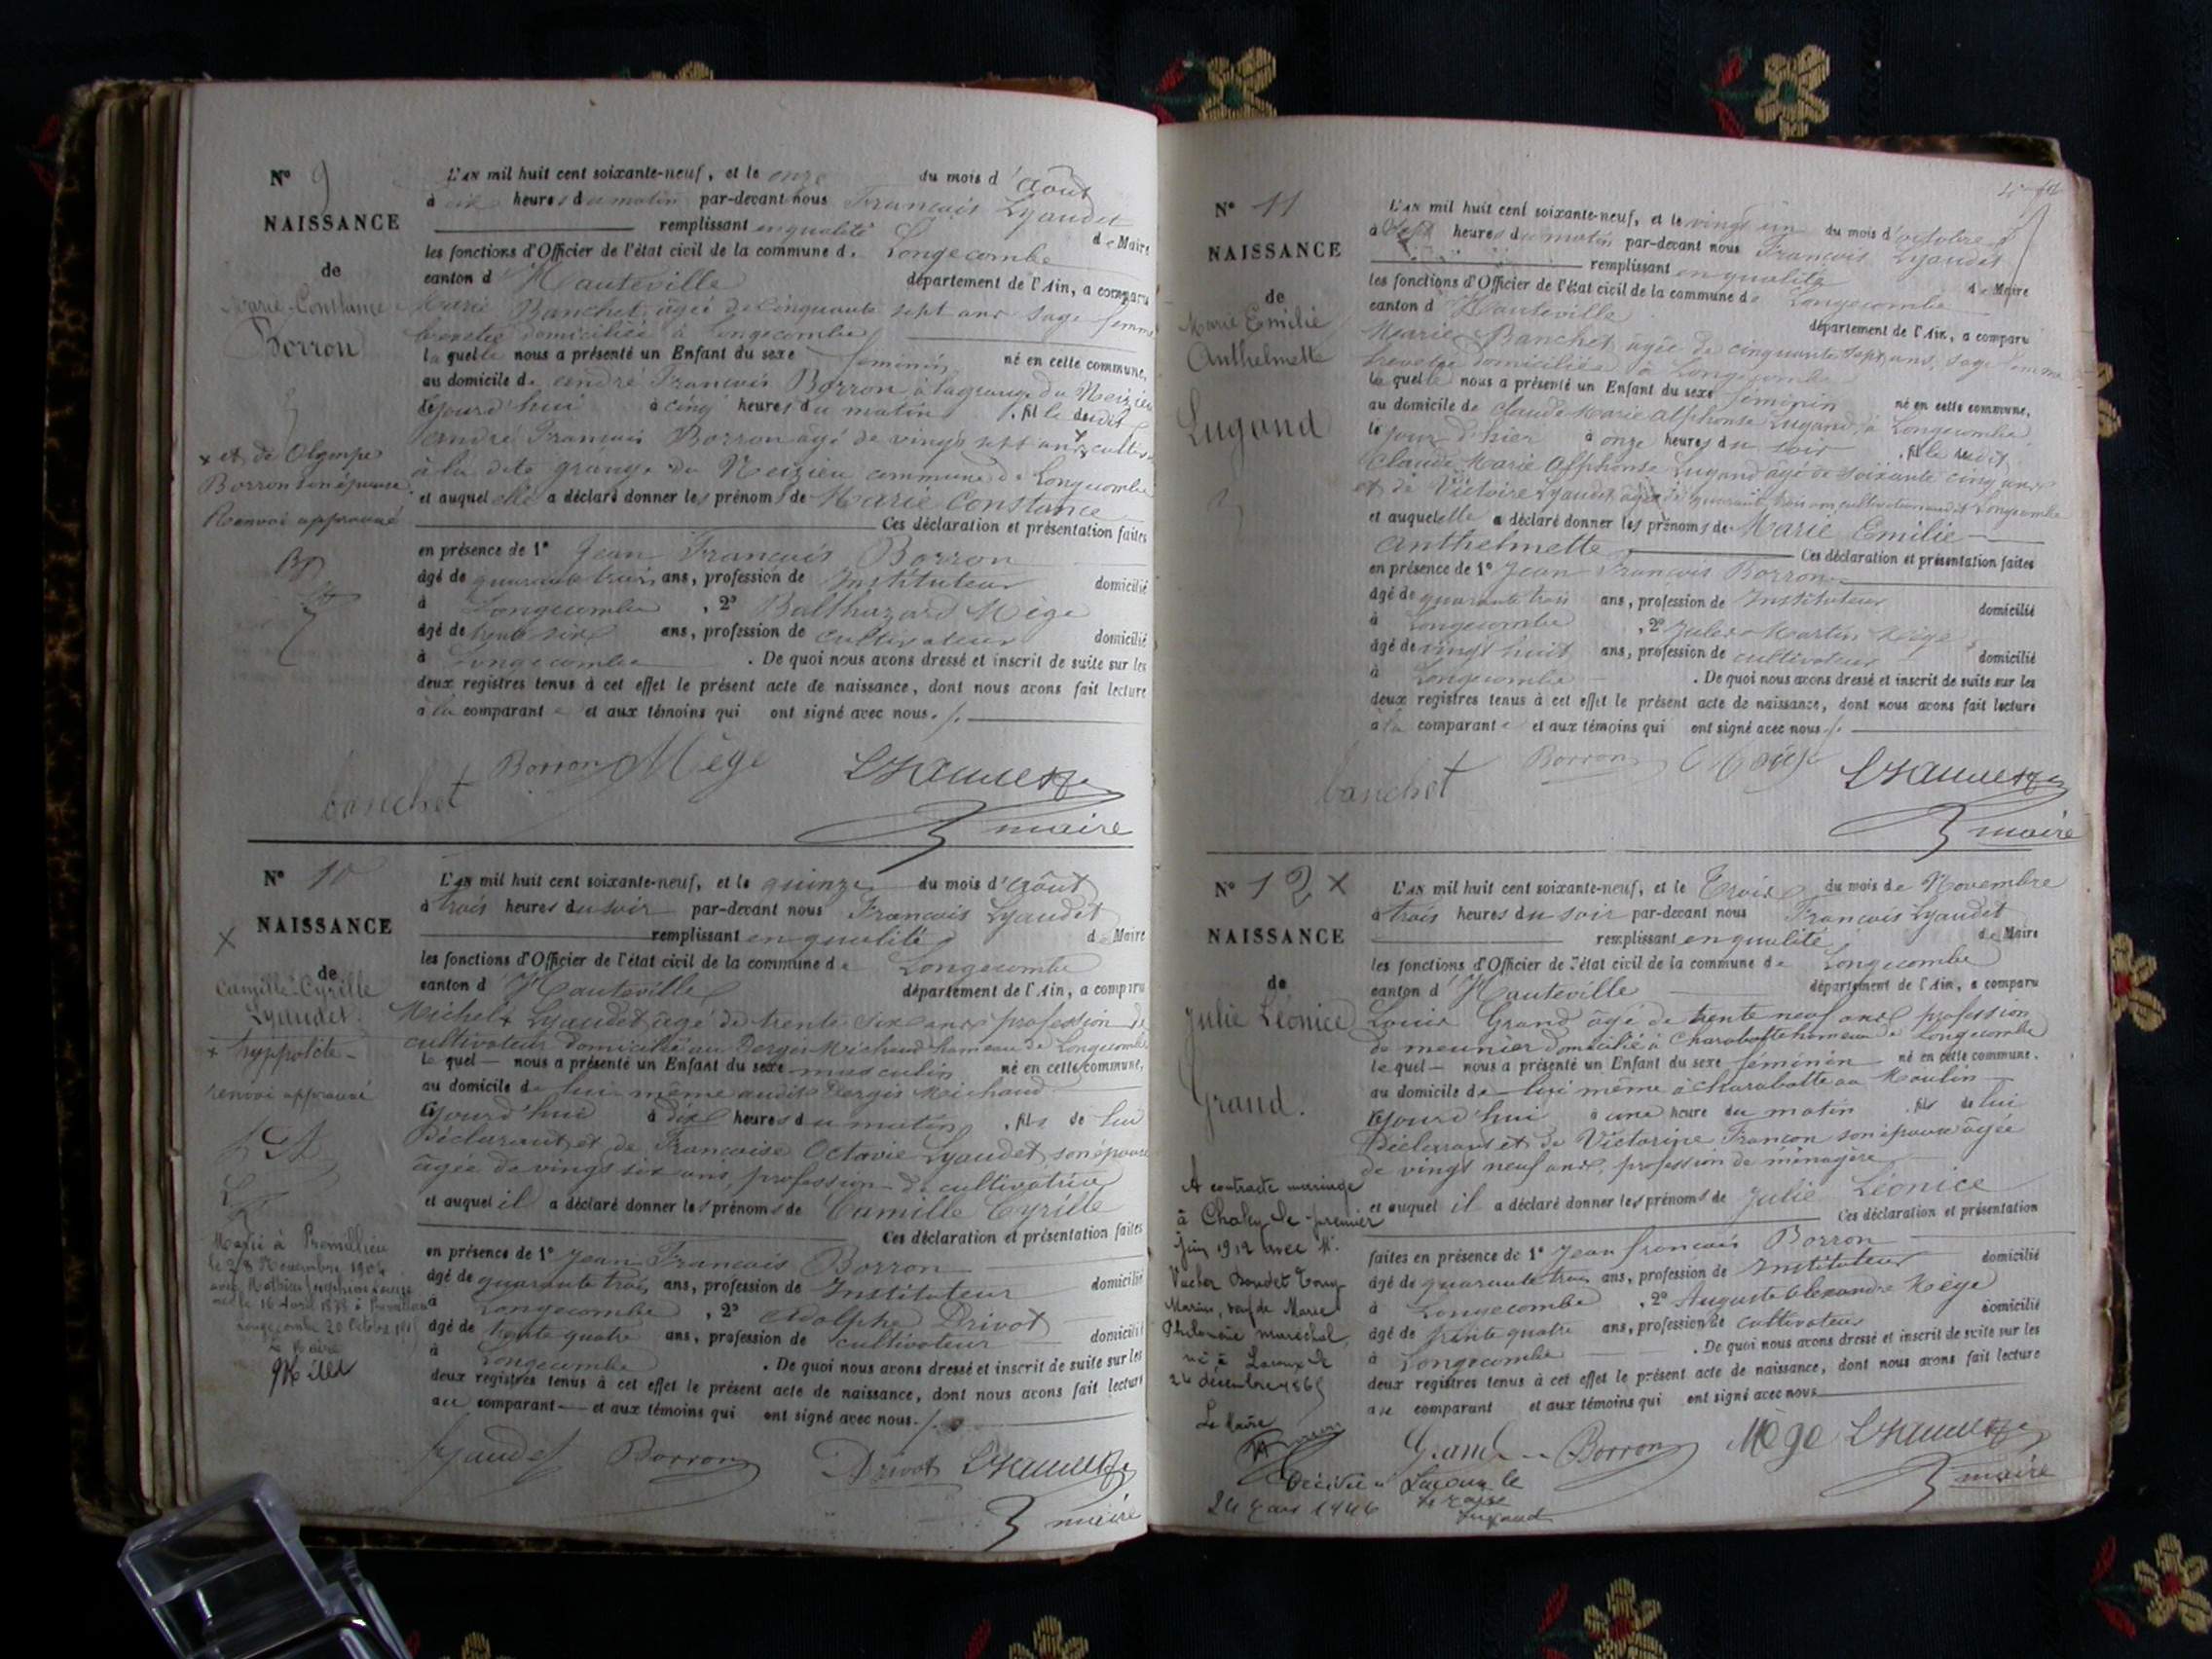 N° 9
NAISSANCE
de
Marie-Constance
Borron
x et de Olympe
Borron son épouse
Renvoi approuvé
L'AN mil huit cent soixante-neuf, et le onze du mois d'Août
à six heures du matin par-devant nous François Lyaudet
remplissant en qualité de Maire
les fonctions d'Officier de l'état civil de la commune de Longecombe
canton d'Hauteville département de l'Ain, a comparu
Marie Banchet âgée de cinquante sept ans sage femme
brevetée domiciliée à Longecombe
laquelle nous a présenté un Enfant du sexe féminin né en cette commune,
au domicile de André François Borron à la grange du Neizieu
ce jourd'hui à cinq heures du matin, fille dudit
André François Borron âgé de vingt sept ans x
à la dite grange du Neizieu commune de Longecombe
et auquel elle a déclaré donner les prénoms de Marie Constance
Ces déclaration et présentation faites
en présence de 1° Jean François Borron
âgé de quarante trois ans, profession de Instituteur domicilié
à Longecombe, 2° Balthazard Mège
âgé de trente six ans, profession de cultivateur domicilié
à Longecombe. De quoi nous avons dressé et inscrit de suite sur les
deux registres tenus à cet effet le présent acte de naissance, dont nous avons fait lecture
à la comparante et aux témoins qui ont signé avec nous.
banchet Borron Mège Lyaudet
maire
N° 10
NAISSANCE
de
Camille-Cyrille
Lyaudet.
+ hyppolite
renvoi approuvé
Marié à Prémillieu
le 28 Novembre 1904
avec Mathieu Joséphine Louise
née le 16 Avril 1878 à Prémillieu
Longecombe 20 Octobre
Le Maire
L'AN mil huit cent soixante-neuf, et le quinze du mois d'Août
à trois heures du soir par-devant nous François Lyaudet
remplissant en qualité de Maire
les fonctions d'Officier de l'état civil de la commune de Longecombe
canton d'Hauteville département de l'Ain, a comparu
Michel + Lyaudet âgé de trente six ans profession de
cultivateur domicilié au Dergis Michaud hameau de Longecombe
lequel nous a présenté un Enfant du sexe masculin né en cette commune,
au domicile de lui même audit Dergis Michaud
ce jourd'hui à dix heures du matin, fils de lui
Déclarant et de Françoise Octavie Lyaudet son épouse
âgée de vingt six ans, profession de cultivatrice
et auquel il a déclaré donner les prénoms de Camille Cyrille
Ces déclaration et présentation faites
en présence de 1° Jean François Borron
âgé de quarante trois ans, profession de Instituteur domicilié
à Longecombe, 2° Adolphe Drivot
âgé de trente quatre ans, profession de cultivateur domicilié
à Longecombe. De quoi nous avons dressé et inscrit de suite sur les
deux registres tenus à cet effet le présent acte de naissance, dont nous avons fait lecture
au comparant et aux témoins qui ont signé avec nous.
Lyaudet Borron Drivot Lyaudet
maire
N° 11
NAISSANCE
de
Marie Emilie
Anthelmette
Lugand
L'AN mil huit cent soixante-neuf, et le vingt un du mois d'octobre
à sept heures du matin par-devant nous François Lyaudet
remplissant en qualité de Maire
les fonctions d'Officier de l'état civil de la commune de Longecombe
canton d'Hauteville département de l'Ain, a comparu
Marie Banchet âgée de cinquante sept ans, sage femme
brevetée domiciliée à Longecombe
laquelle nous a présenté un Enfant du sexe féminin né en cette commune,
au domicile de Claude Marie Alphonse Lugand, à Longecombe
le jour d'hier à onze heures du soir, fille dudit
Claude Marie Alphonse Lugand âgé de soixante cinq ans
et de Victoire Lyaudet âgée de quarante trois ans cultivateurs audit Longecombe
et auquel elle a déclaré donner les prénoms de Marie Emilie
Anthelmette Ces déclaration et présentation faites
en présence de 1° Jean François Borron
âgé de quarante trois ans, profession de Instituteur domicilié
à Longecombe, 2° Jules Martin Mège
âgé de vingt huit ans, profession de cultivateur domicilié
à Longecombe. De quoi nous avons dressé et inscrit de suite sur les
deux registres tenus à cet effet le présent acte de naissance, dont nous avons fait lecture
à la comparante et aux témoins qui ont signé avec nous.
banchet Borron Mège Lyaudet
maire
N° 12 x
NAISSANCE
de
Julie Léonice
Grand.
A contracté mariage
à Chaley le premier
Juin 1912 avec Mr.
Vacher
Marius, veuf de Marie
Philomène maréchal,
né à Lacoux le
24 décembre 186
Le Maire
Décédée à Lacoux le
24 1946
le Maire
L'AN mil huit cent soixante-neuf, et le Trois du mois de Novembre
à trois heures du soir par-devant nous François Lyaudet
remplissant en qualité de Maire
les fonctions d'Officier de l'état civil de la commune de Longecombe
canton d'Hauteville département de l'Ain, a comparu
Louis Grand âgé de trente neuf ans profession
de meunier domicilié à Charabotte hameau de Longecombe
lequel nous a présenté un Enfant du sexe féminin né en cette commune.
au domicile de lui même à charabotte au Moulin
ce jourd'hui à une heure du matin, fils de lui
Déclarant et de Victorine Françon son épouse âgée
de vingt neuf ans, profession de ménagère
et auquel il a déclaré donner les prénoms de Julie Léonice
Ces déclaration et présentation
faites en présence de 1° Jean François Borron
âgé de quarante trois ans, profession de Instituteur domicilié
à Longecombe, 2° Auguste Alexandre Mège
âgé de trente quatre ans, profession de cultivateur domicilié
à Longecombe. De quoi nous avons dressé et inscrit de suite sur les
deux registres tenus à cet effet le présent acte de naissance, dont nous avons fait lecture
au comparant et aux témoins qui ont signé avec nous
Grand Borron Mège Lyaudet
maire